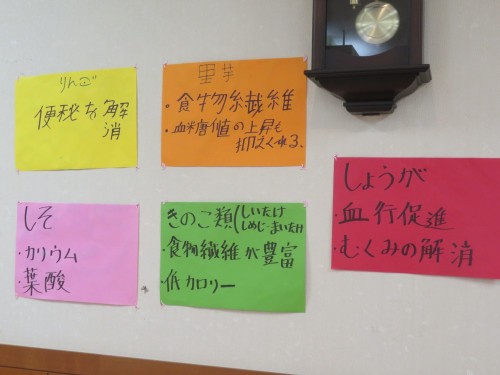 りんご
便秘を解
消
里芋
・食物繊維
・血糖値の上昇も
抑えくれる.
しそ
・カリウム
・葉酸
きのこ類(しいたけ
しめじ・まいたけ
・食物繊維が豊富
・低カロリー
しょうが
・血行促進
・むくみの解消